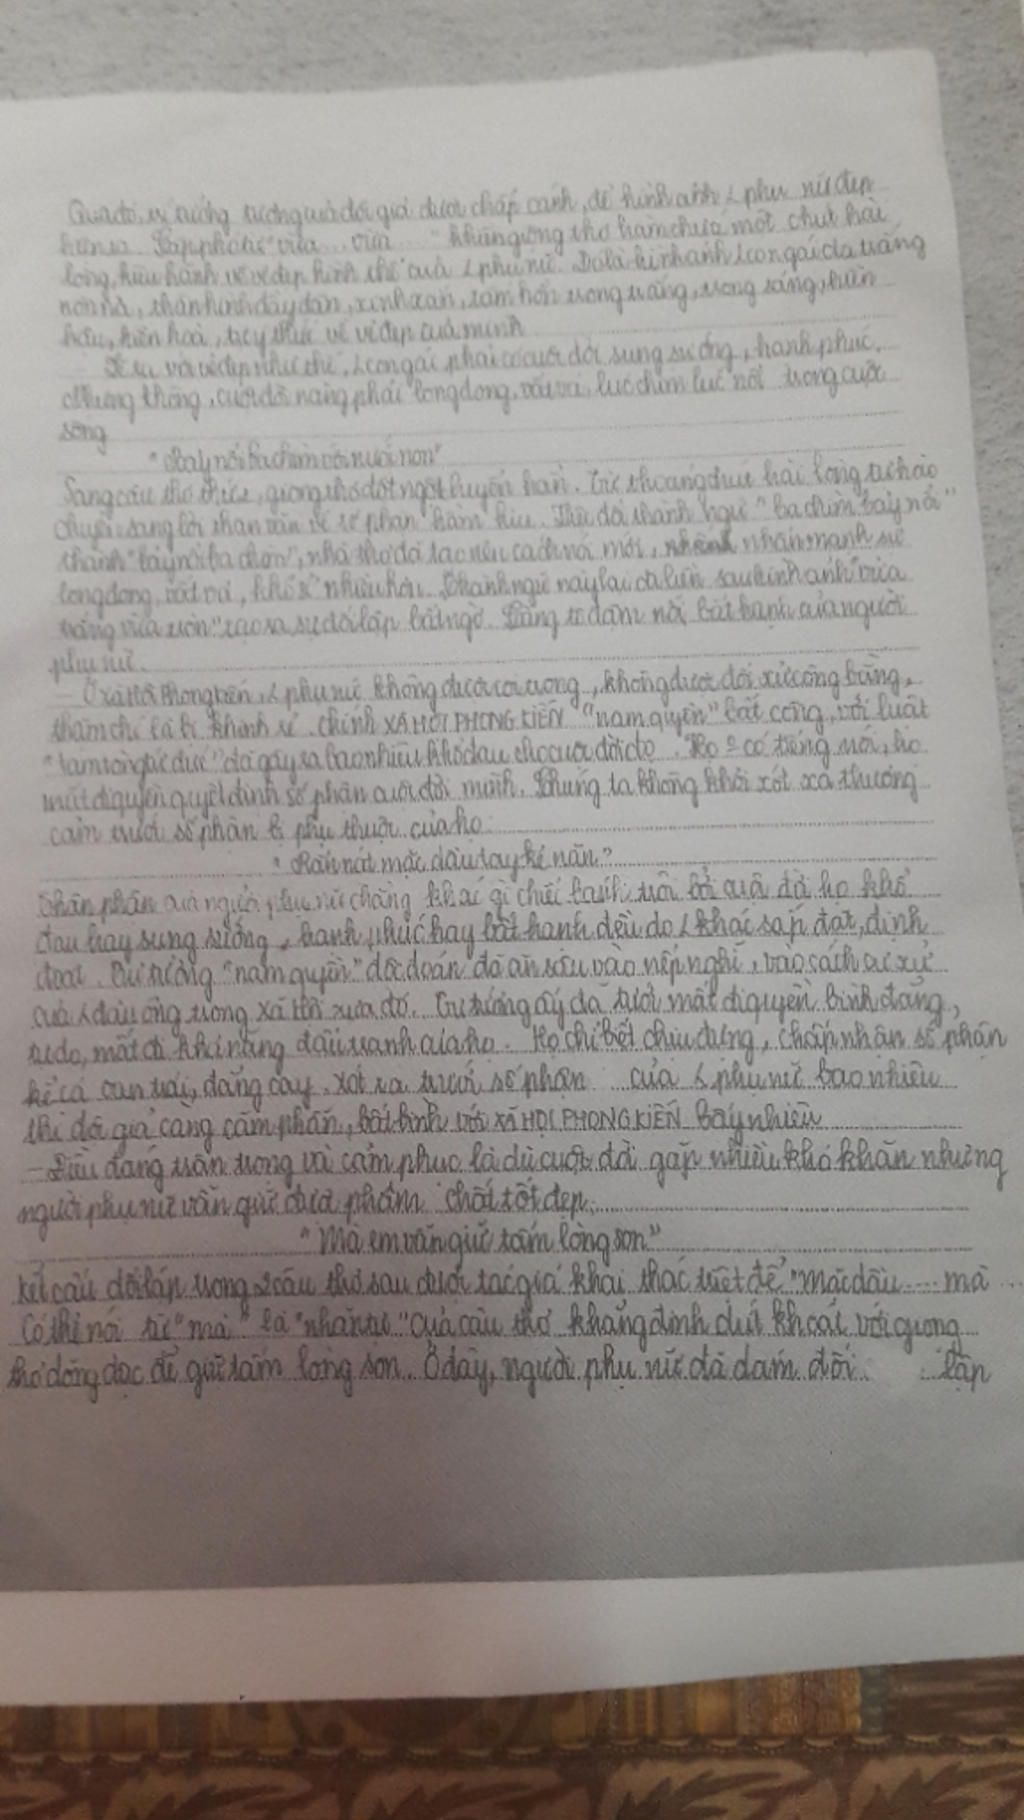 Qua đó, trí tưởng tượng của độc giả được chắp cánh, để hình ảnh L phụ nữ đẹp
hơn. Cặp phó từ "vừa... vừa..." khiến giọng thơ hàm chứa một chút hài
lòng, kiêu hãnh về vẻ đẹp hình thể của L phụ nữ. Đó là hình ảnh L con gái da trắng
nõn nà, thân hình đầy đặn, xinh xắn, tâm hồn trong trắng, trong sáng, hiền
hậu, hiền hoà, tự ý thức về vẻ đẹp của mình
và vẻ đẹp như thế, L con gái phải có cuộc đời sung sướng, hạnh phúc.
Nhưng không, cuộc đời nàng phải long đong, vất vả, lúc chìm lúc nổi trong cuộc
sống
"Bảy nổi ba chìm với nước non"
Sang câu thơ thứ 2, giọng thơ đột ngột chuyển hẳn. Từ thoáng chút hài lòng, tự hào
chuyển sang lời than vãn về số phận hẩm hiu. Thay đổi thành ngữ "ba chìm bảy nổi"
thành "bảy nổi ba chìm", nhà thơ đã tạo nên cách nói mới, nhấn mạnh sự
long đong, vất vả, khổ sở nhiều hơn. Thành ngữ này lại đi liền sau hình ảnh "vừa
trắng vừa tròn" tạo ra sự đối lập bất ngờ. Càng tô đậm nỗi bất hạnh của người
phụ nữ.
- Ở xã hội phong kiến, L phụ nữ không được coi trọng, không được đối xử công bằng,
thậm chí là bị khinh rẻ. Chính XÃ HỘI PHONG KIẾN "nam quyền" bất công, với luật
"tam tòng tứ đức" đã gây ra bao nhiêu khổ đau cho cuộc đời họ. Họ ko có tiếng nói, họ
mất đi quyền quyết định số phận cuộc đời mình. Chúng ta không khỏi xót xa thương
cảm trước số phận bị phụ thuộc của họ.
"Rắn nát mặc dầu tay kẻ nặn"
Thân phận của người phụ nữ chẳng khác gì chiếc bánh trôi bởi cuộc đời họ khổ
đau hay sung sướng, hạnh phúc hay bất hạnh đều do L khác sắp đặt, định
đoạt. Tư tưởng "nam quyền" độc đoán đã ăn sâu vào nếp nghĩ, vào cách cư xử
của L đàn ông trong xã hội xưa đó. Tư tưởng ấy đã tước mất đi quyền bình đẳng,
tự do, mất đi khả năng đấu tranh của họ. Họ chỉ biết chịu đựng, chấp nhận số phận
kể cả oan trái, đắng cay. Xót xa trước số phận của L phụ nữ bao nhiêu
thì độc giả càng căm phẫn, bất bình với XÃ HỘI PHONG KIẾN bấy nhiêu
- Điều đáng trân trọng và cảm phục là dù cuộc đời gặp nhiều khó khăn nhưng
người phụ nữ vẫn giữ được phẩm chất tốt đẹp.
"Mà em vẫn giữ tấm lòng son"
Kết cấu đối lập trong 2 câu thơ sau được tác giả khai thác triệt để "Mặc dầu .... mà ...
Có thể nói từ "mà" là "nhãn tự" của câu thơ khẳng định dứt khoát với giọng
thơ dõng dạc để giữ tấm lòng son. Ở đây, người phụ nữ đã dám đối lập